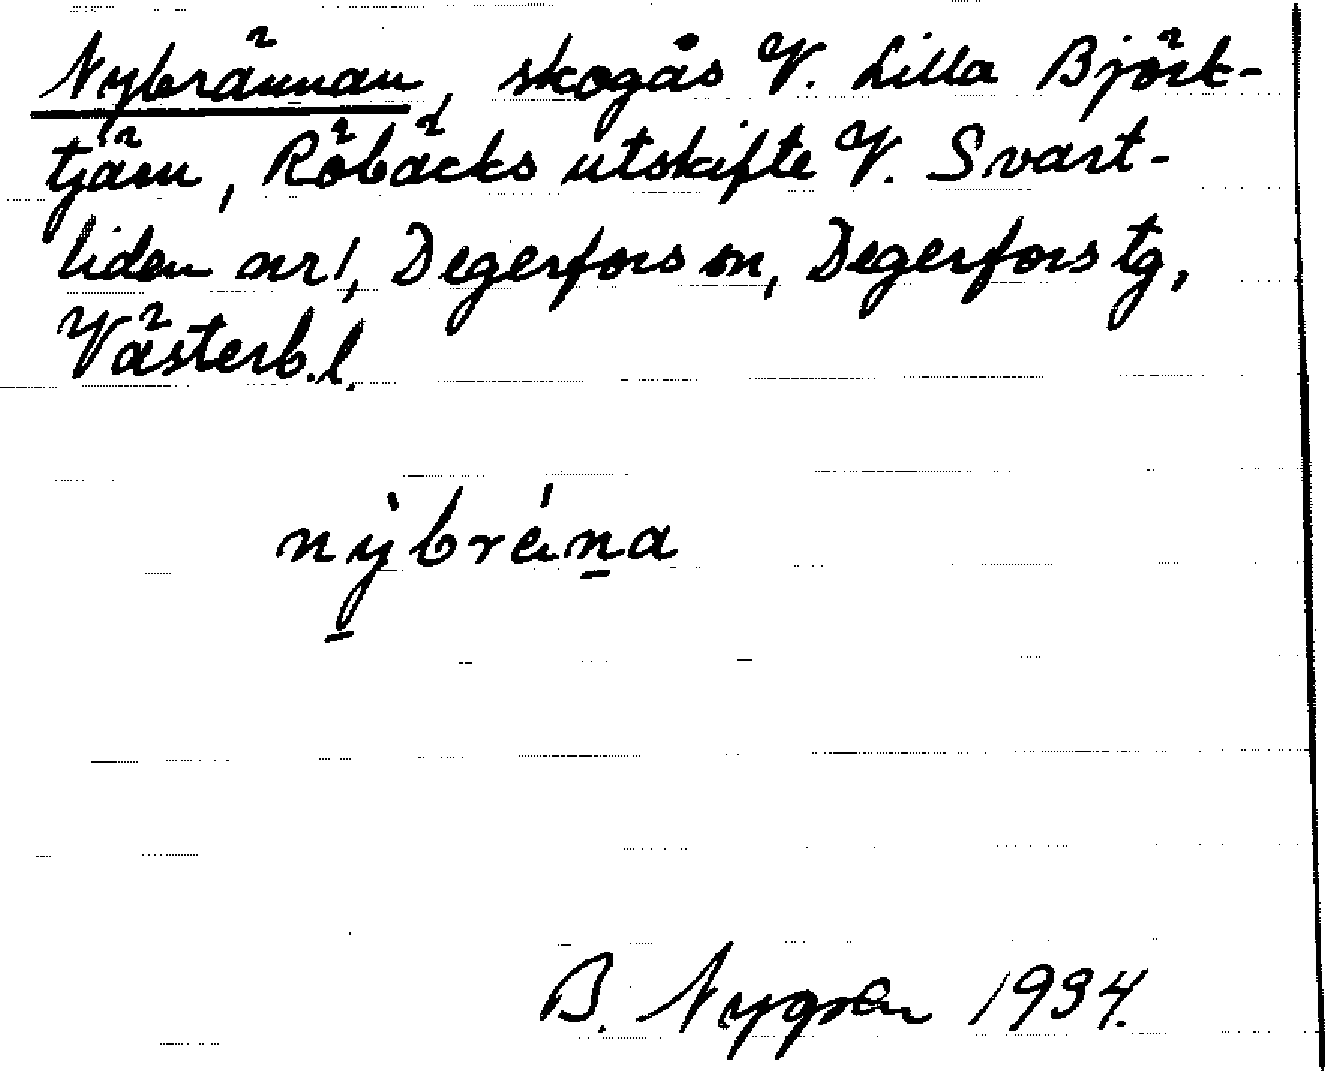 Nybrännan, skogås V. Lilla Björk-
tjärn, Röbäcks utskifte V. Svart-
liden nr 1, Degerfors sn, Degerfors tg,
Västerb.l.
nỳbrä́na
B. Nygren 1934.